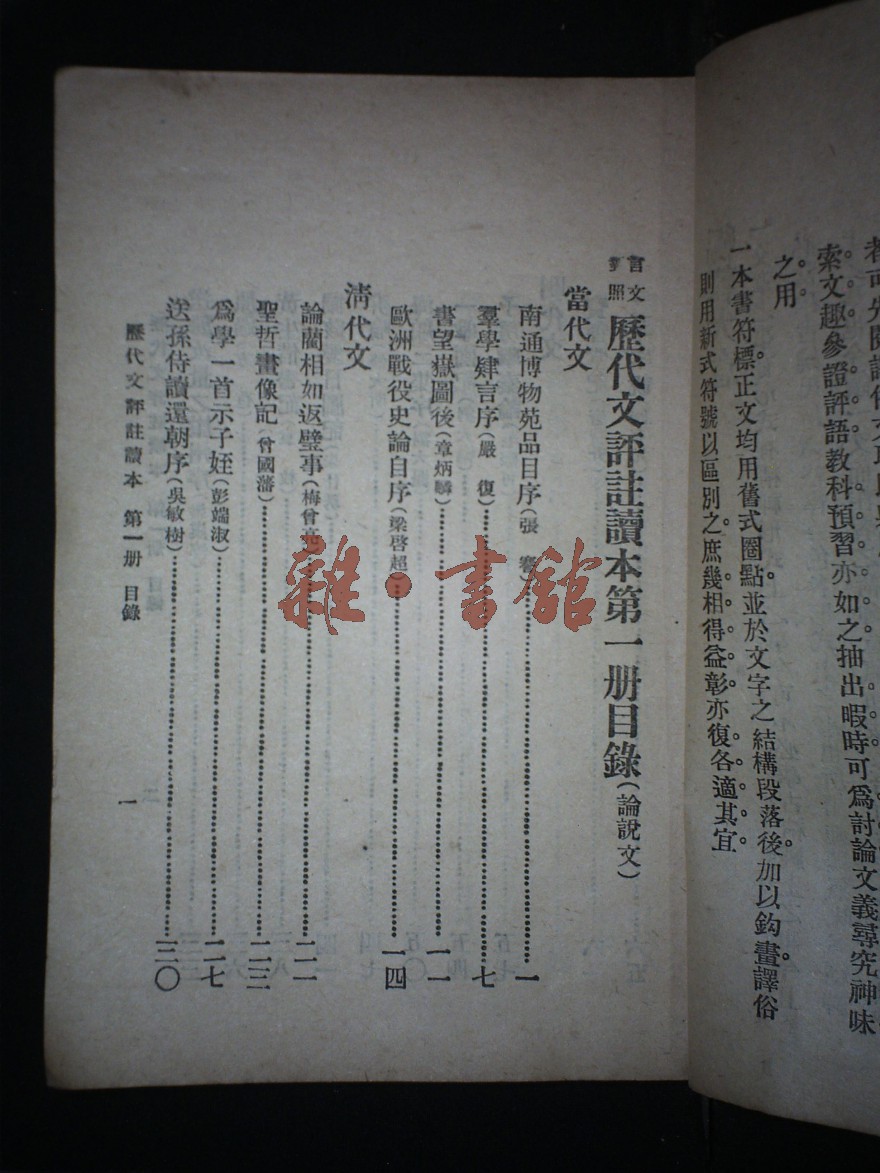 索文趣參證評語教科預習亦如之抽出暇時可爲討論文義尋究神味
之用
一本書符標正文均用舊式圈點並於文字之結構段落後加以鈎畫譯俗
則用新式符號以區別之庶幾相得益彰亦復各適其宜
言文對照歷代文評註讀本第一册目錄(論說文)
當代文
南通博物苑品目序(張謇)……一
羣學肄言序(嚴復)……七
書望嶽圖後(章炳麟)……一一
歐洲戰役史論自序(梁啓超)……一四
清代文
論藺相如返璧事(梅曾亮)……二一
聖哲畫像記(曾國藩)……二三
爲學一首示子姪(彭端淑)……二七
送孫侍讀還朝序(吳敏樹)……三〇
歷代文評註讀本 第一册 目錄
一
雜·書館